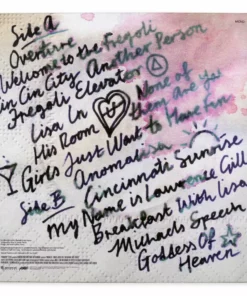 Side A
Overture
Welcome to the Fregoli
in Cin City Another Person
Fregoli Elevator
Lisa In None of
His Room them Are You
Girls Just Want to Have Fun
Anomalisa
Side B Cincinnati Sunrise
My Name is Lawrence Gill
Breakfast With Lisa
Michaels Speech
Goddess Of
Heaven